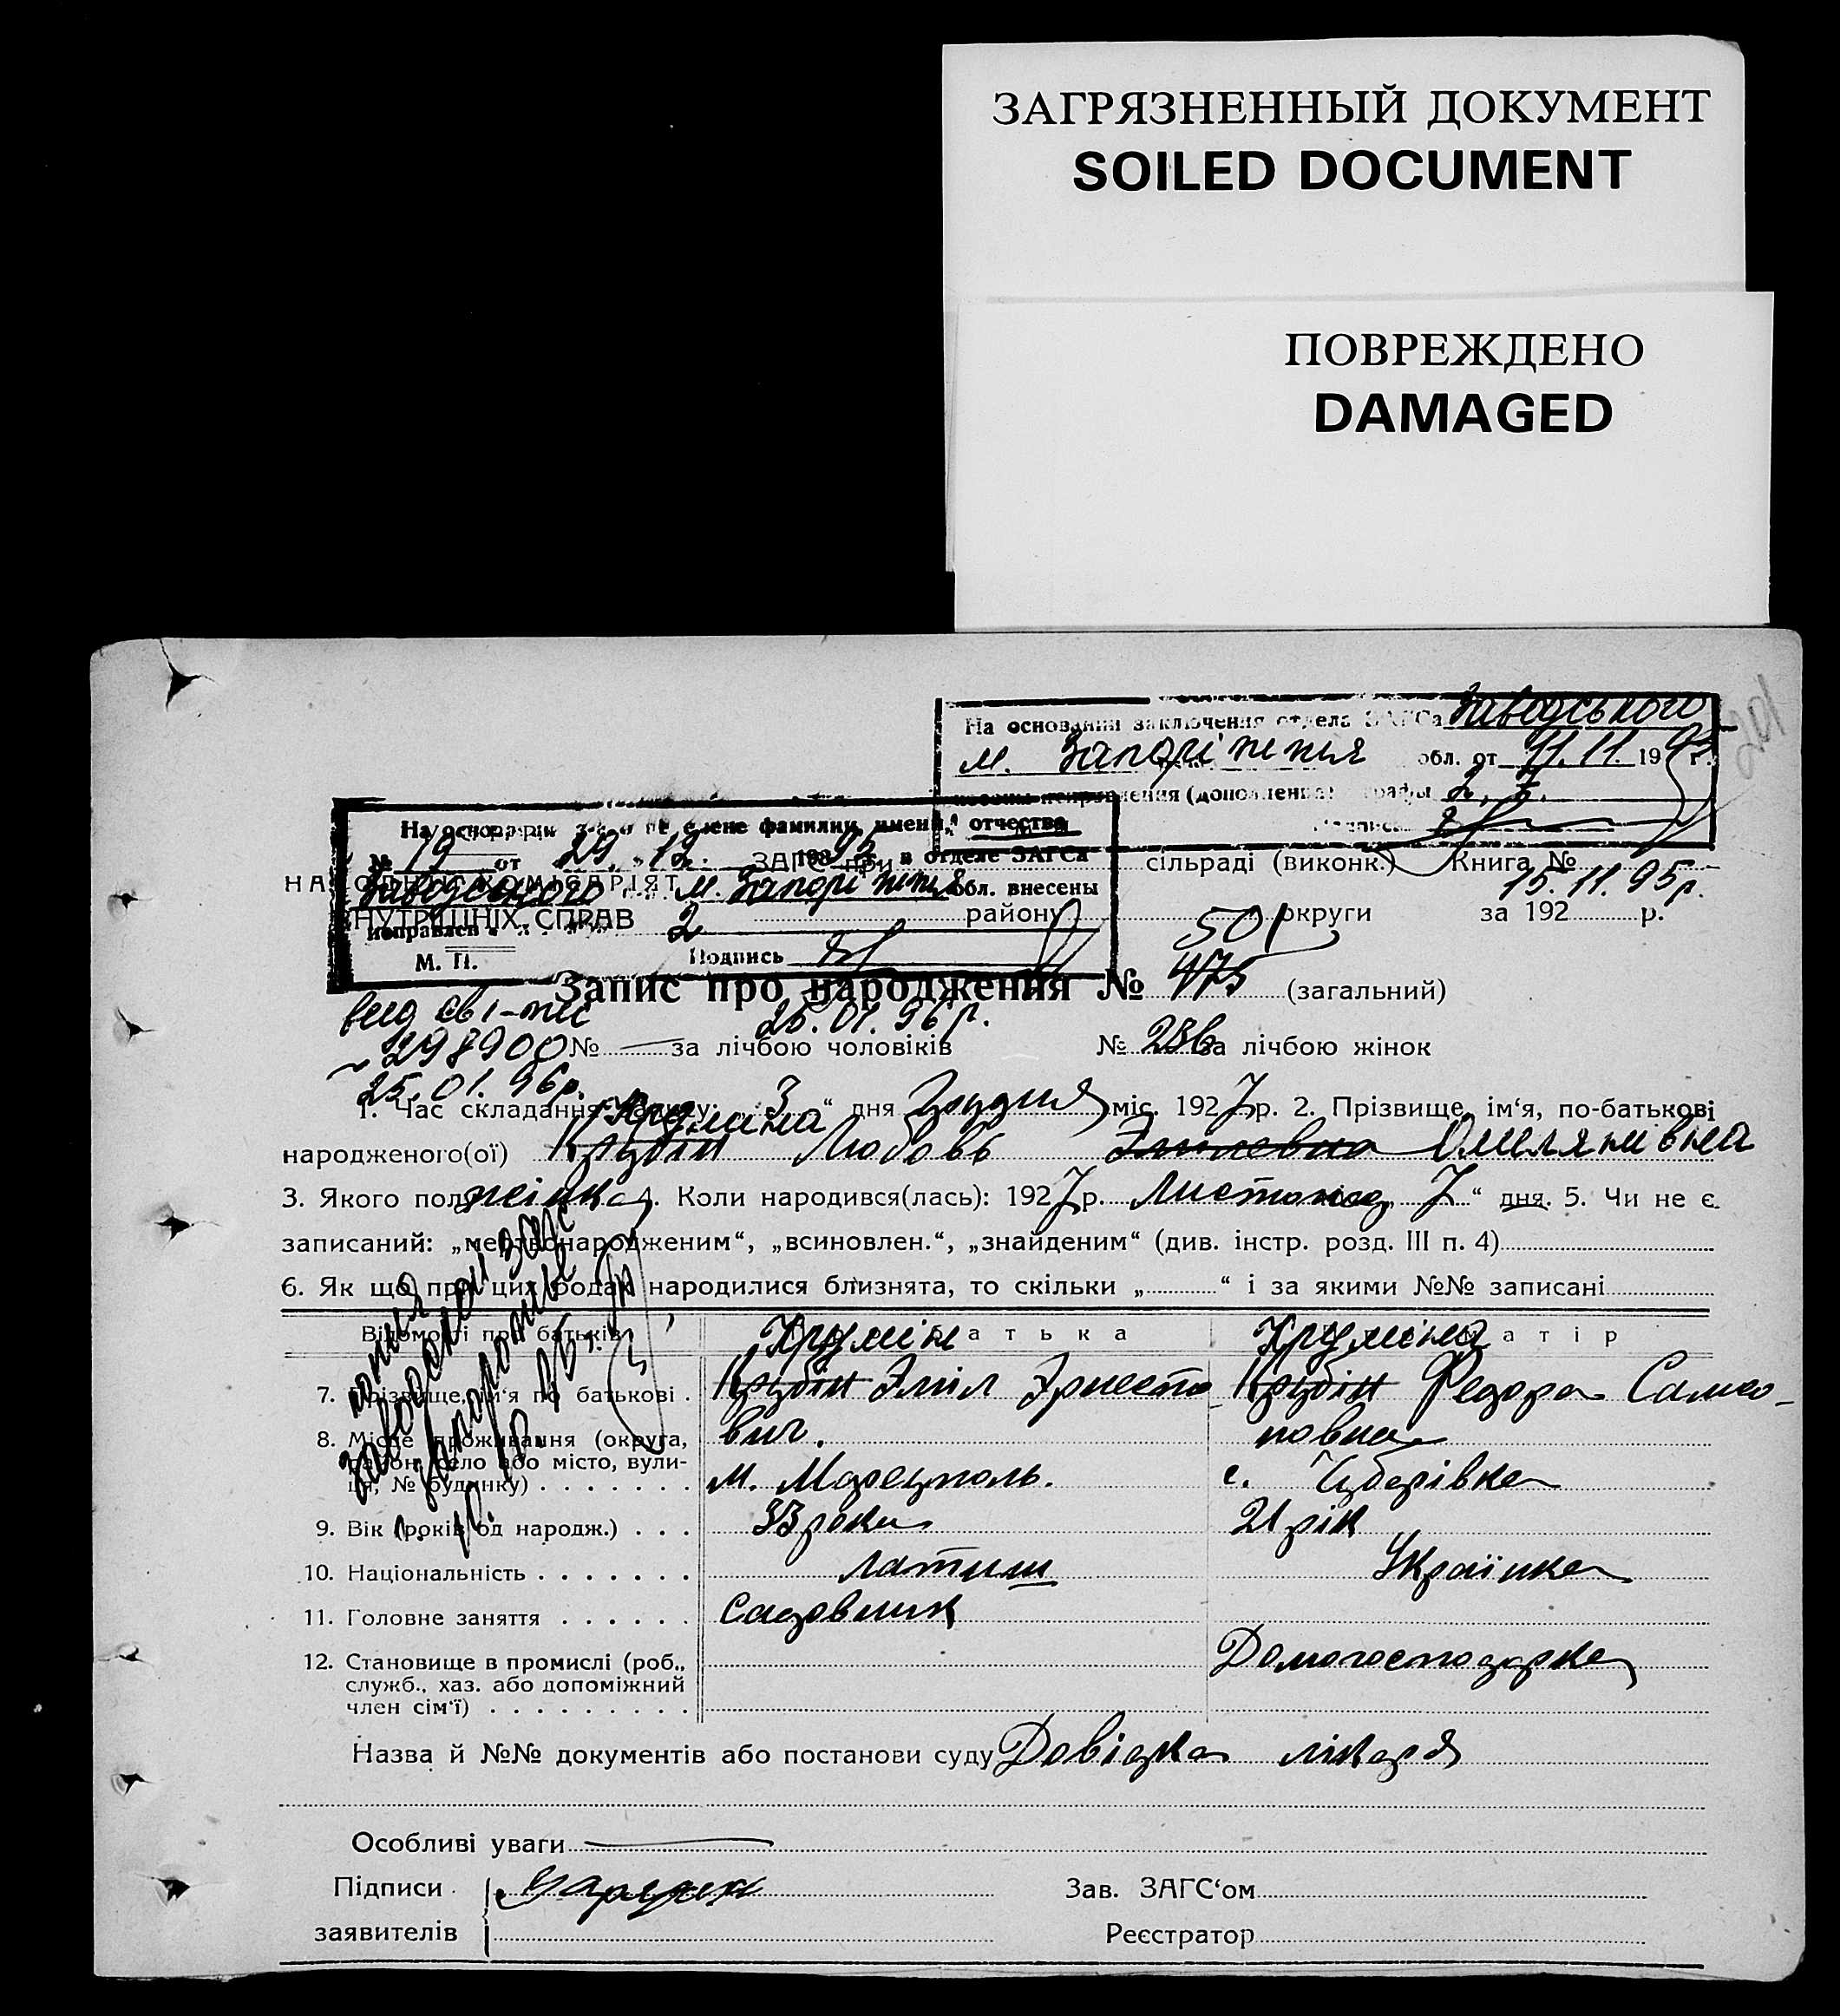 ЗАГРЯЗНЕННЫЙ ДОКУМЕНТ
SOILED DOCUMENT
ПОВРЕЖДЕНО
DAMAGED
На основании заключения отдела ЗАГСа Заводського
м. Запоріжжя обл. от 11.11. 199 г.
исправления (дополнения) графы 2, 7.
Подпись
На основании о перемене фамилии, имени, отчества
№ 19 от 29. 12. 1993 в отделе ЗАГСа
Заводського м. Запоріжжя обл. внесены
исправлен 2
М. П. Подпись
ЗАГС при сільраді (виконк.) Книга №
НАРОДНІЙ КОМІСАРІЯТ
15.11.95р.
ВНУТРІШНІХ СПРАВ району округи за 192 р.
501
Запис про народження № 475 (загальний)
вид св 1-ше 25.01.96р.
298900 № за лічбою чоловіків № 236 за лічбою жінок
25.01.96р.
1. Час складання запису: „3“ дня Грудня міс. 1927 р. 2. Прізвище, ім‘я, по-батькові
Круміна
народженого(ої) Крубін Любовь Эмилевна Омелянівна
3. Якого полу жінка 4. Коли народився(лась): 1927 р. Листопад 7“ дня. 5. Чи не є
записаний: „мертвонародженим“, „всиновлен.“, „знайденим“ (див. інстр. розд. III п. 4)
6. Як що при цих родах народилися близнята, то скільки „ “ і за якими №№ записані
Відомості про батьків Батька Матір
Крумін Круміна
7. Прізвище, ім‘я по батькові . Крубін Эміл Эрнесто Крубін Федора Самсо-
вич. новна
8. Місце проживання (округа,
район, село або місто, вули-
ця, № будинку) . . . . . . . м. Маріуполь. с. Чубарівка
9. Вік (років од народж.) . . . 33 роки 21 рік
10. Національність . . . . . . . Латиш Українка
11. Головне заняття . . . . . . Садовник
12. Становище в промислі (роб., Домогосподарка
служб., хаз. або допоміжний
член сім‘ї) . . . . . . . . .
Назва й №№ документів або постанови суду Довідка лікаря
Особливі уваги
Підписи Зав. ЗАГС‘ом
заявителів Реєстратор